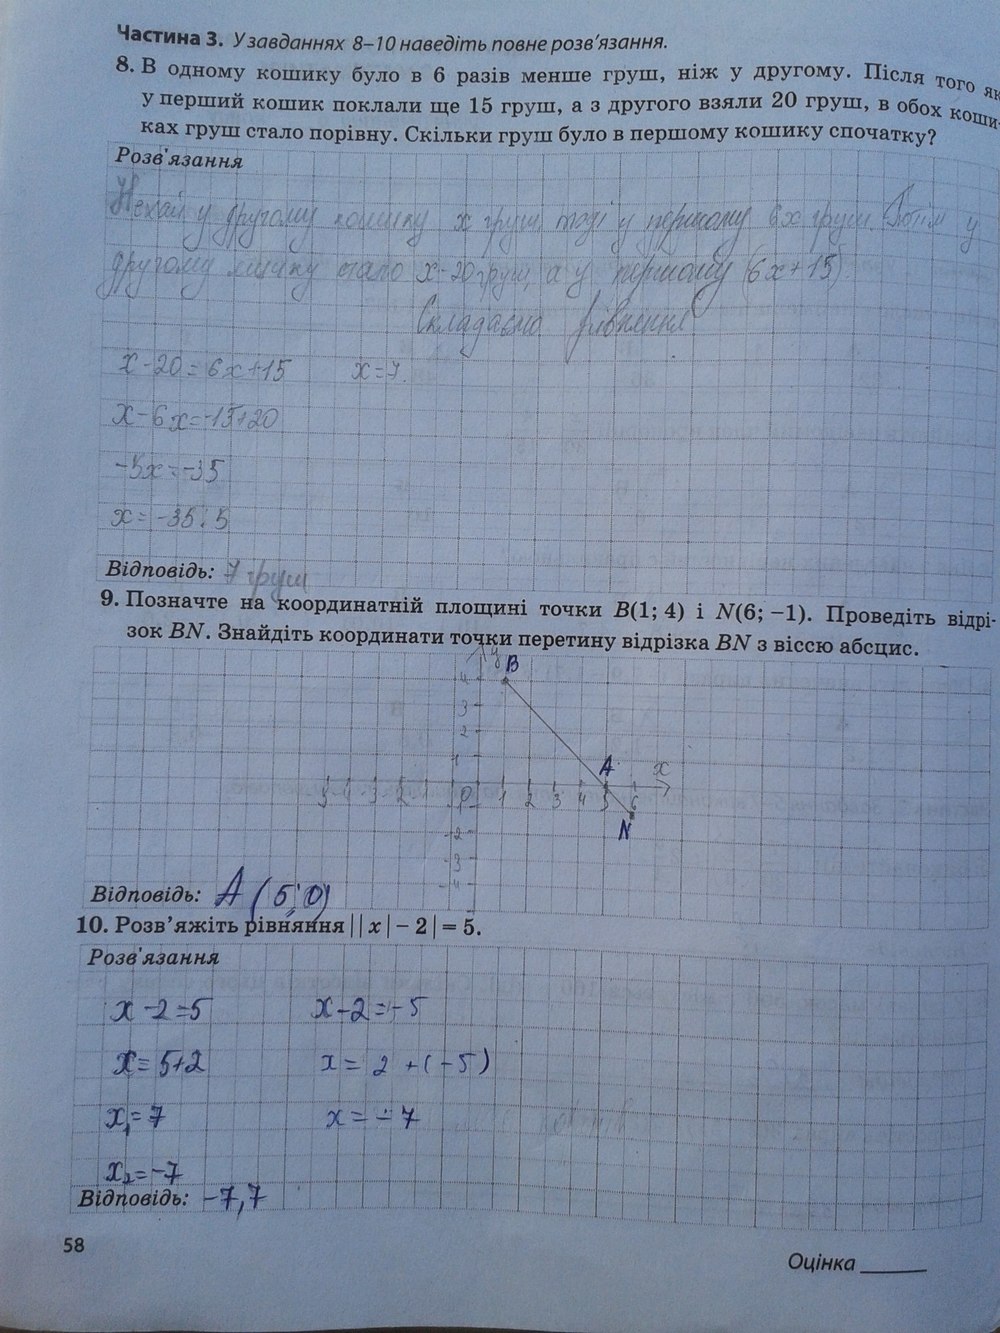 Частина 3. У завданнях 8–10 наведіть повне розв'язання.
8. В одному кошику було в 6 разів менше груш, ніж у другому. Після того як
у перший кошик поклали ще 15 груш, а з другого взяли 20 груш, в обох коши-
ках груш стало порівну. Скільки груш було в першому кошику спочатку?
Розв'язання
Нехай у другому кошику x груш, тоді у першому 6x груш. Потім у
другому кошику стало x-20 груш, а у першому (6x+15).
Складаємо рівняння
x-20=6x+15 x=7.
x-6x=-15+20
-5x=-35
x=-35:5
Відповідь: 7 груш
9. Позначте на координатній площині точки B(1; 4) і N(6; −1). Проведіть відрі-
зок BN. Знайдіть координати точки перетину відрізка BN з віссю абсцис.
y B
4
3
2
1 A x
0 1 2 3 4 5 6
N
-2
-3
-4
Відповідь: A (5; 0)
10. Розв'яжіть рівняння ||x| − 2| = 5.
Розв'язання
x-2=5 x-2=-5
x=5+2 x=2+(-5)
x₁=7 x=-7
x₂=-7
Відповідь: -7,7
58
Оцінка